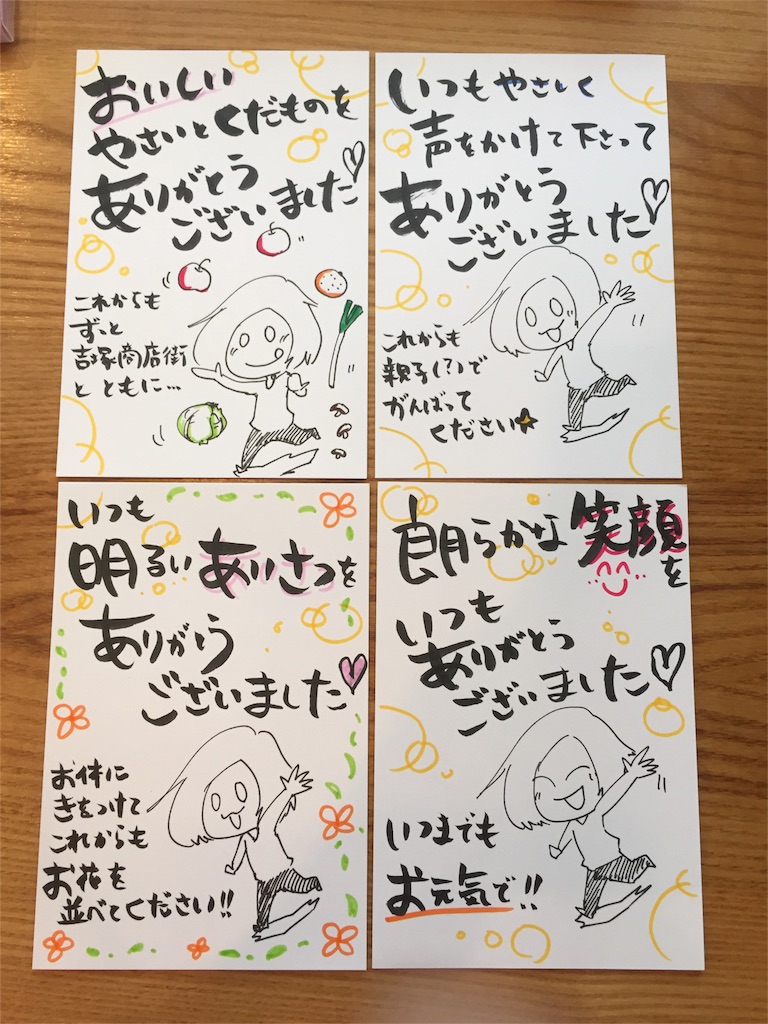 おいしい
やさいとくだものを
ありがとう
ございました♡
これからも
ずっと
吉塚商店街
とともに…
いつもやさしく
声をかけて下さって
ありがとう
ございました♡
これからも
親子(?)で
がんばって
ください★
いつも
明るいあいさつを
ありがとう
ございました♡
お体に
きをつけて
これからも
お花を
並べてください!!
朗らかな笑顔を
いつも
ありがとう
ございました♡
いつまでも
お元気で!!